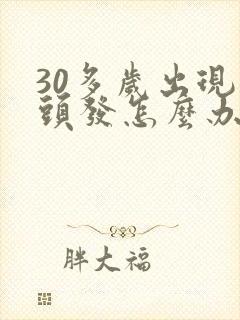 30多歲出現
頭發怎麼办
胖大福